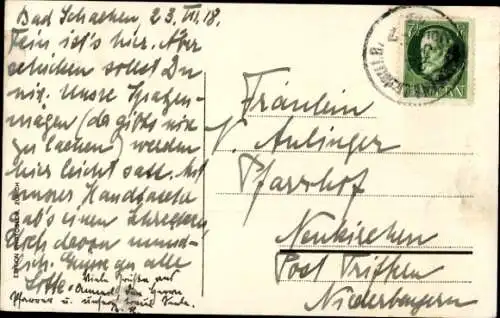 Bad Schachen 23. VII. 18.
Fein, ist's hier. Aber
schicken sollst Du
nix. Unsre Spatzen-
mägen (da gibts nix
zu lachen) werden
hier leicht satt. Mit
unsrer Handtasche
gab's einen Schrecken,
doch davon münd-
ich. Grüsse an alle
Lotte
Viele Grüße auf
den Herrn
Pfarrer u.
Fräulein
V. Aulinger
Pfarrhof
Neukirchen
Post Triftern
Niederbayern
BAYERN